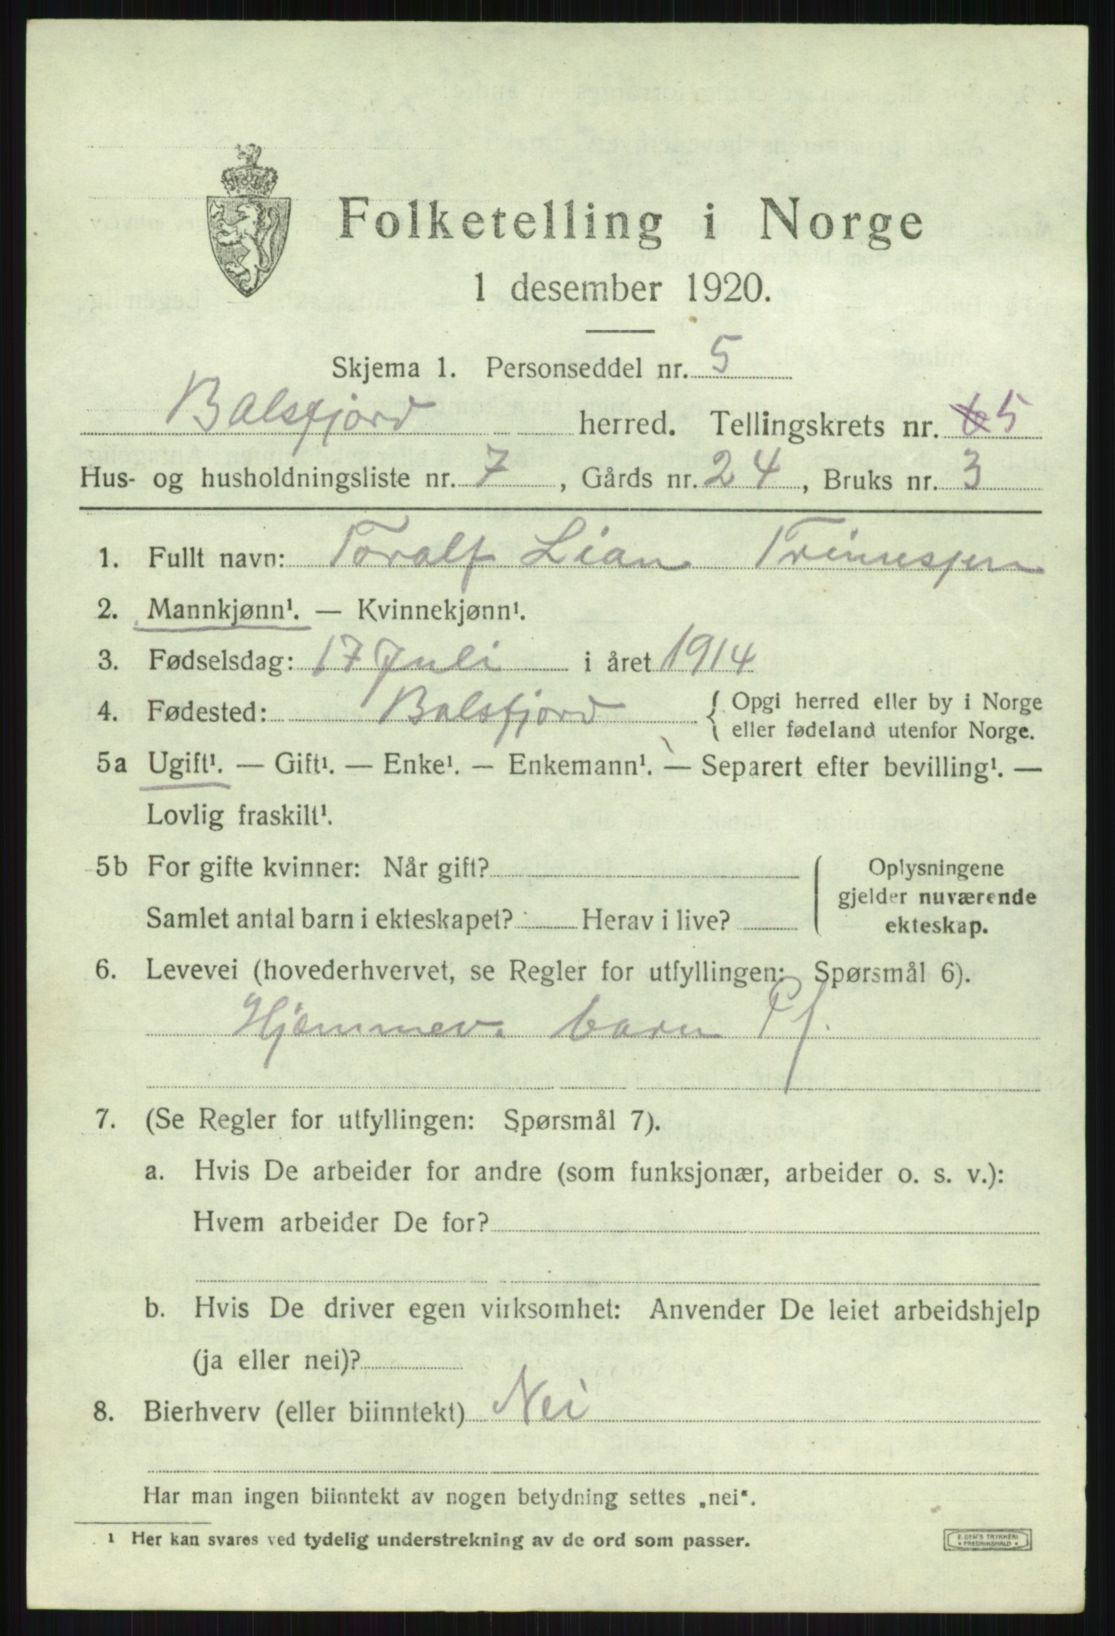 Folketelling i Norge
1 desember 1920.
Skjema 1. Personseddel nr. 5
Balsfjord herred. Tellingskrets nr. 6 5
Hus- og husholdningsliste nr. 7, Gårds nr. 24, Bruks nr. 3
1. Fullt navn: Toralf Lian
2. Mannkjønn¹. — Kvinnekjønn¹.
3. Fødselsdag: 17 Juli i året 1914
4. Fødested: Balsfjord { Opgi herred eller by i Norge
eller fødeland utenfor Norge.
5a Ugift¹. — Gift¹. — Enke¹. — Enkemann¹. — Separert efter bevilling¹. —
Lovlig fraskilt¹.
5b For gifte kvinner: Når gift?
Samlet antal barn i ekteskapet? Herav i live?
Oplysningene
gjelder nuværende
ekteskap.
6. Levevei (hovederhvervet, se Regler for utfyllingen: Spørsmål 6).
Hjemmev. barn
7. (Se Regler for utfyllingen: Spørsmål 7).
a. Hvis De arbeider for andre (som funksjonær, arbeider o. s. v.):
Hvem arbeider De for?
b. Hvis De driver egen virksomhet: Anvender De leiet arbeidshjelp
(ja eller nei)?
8. Bierhverv (eller biinntekt) Nei
Har man ingen biinntekt av nogen betydning settes „nei".
¹ Her kan svares ved tydelig understrekning av de ord som passer.
E. SEM'S TRYKKERI
FREDRIKSHALD